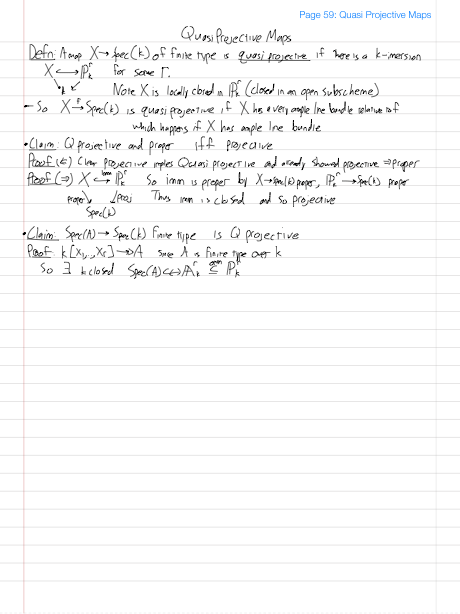 Page 59: Quasi Projective Maps
Quasi Projective Maps
Defn: A map X → Spec(k) of finite type is quasi projective if there is a k-imersion
X ↪ ℙᵣₖ for some r.
↘k ↙k Note X is locally closed in ℙᵣₖ (closed in an open subscheme)
- So X →f Spec(k) is quasi projective if X has a very ample line bundle relative to f
which happens if X has ample line bundle
• Claim: Q projective and proper iff projective
Proof (⇐) Clear projective implies Quasi projective and already showed projective ⇒ proper
Proof (⇒) X ↪imm ℙᵣₖ So imm is proper by X → Spec(k) proper, ℙᵣₖ → Spec(k) proper
proper↘ ↓proj Thus imm is closed and so projective
Spec(k)
• Claim: Spec(A) → Spec(k) finite type is Q projective
Proof: k[x₁,..,xᵣ] ↠ A since A is finite type over k
So ∃ k closed Spec(A) ↪ 𝔸ᵣₖ ⊆open ℙᵣₖ